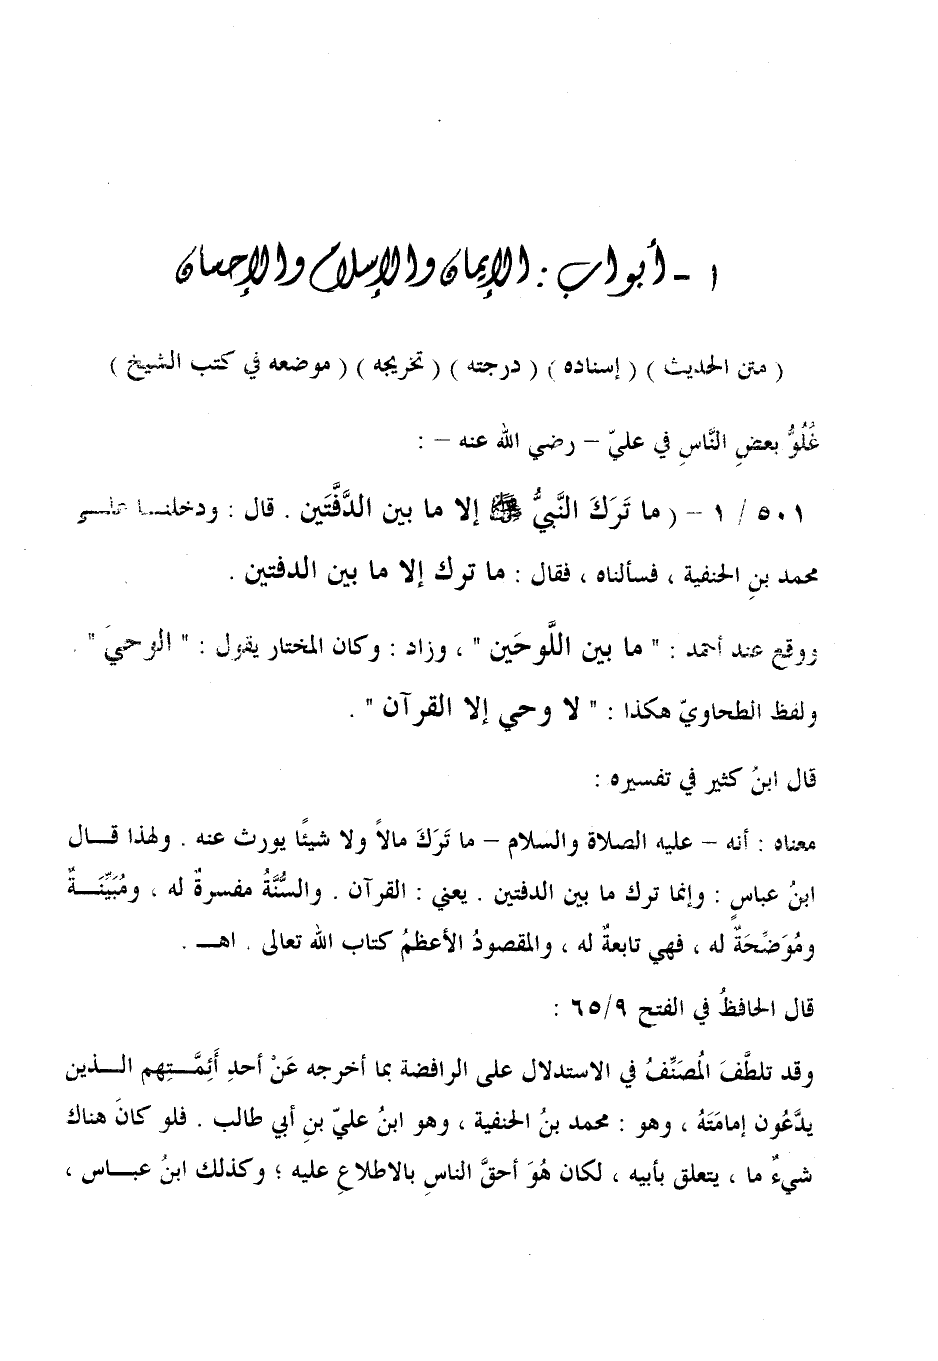 ١ - أبواب : الإيمان والإسلام والإحسان
( متن الحديث ) ( إسناده ) ( درجته ) ( تخريجه ) ( موضعه في كتب الشيخ )
غُلُوُّ بعضِ النَّاسِ في عليّ – رضي الله عنه – :
٥٠١ / ١ – ( ما تَرَكَ النَّبيُّ ﷺ إلا ما بين الدَّفَّتَين . قال : ودخلنـا علـى
محمد بنِ الحنفية ، فسألناه ، فقال : ما ترك إلا ما بين الدفتين .
ووقع عند أحمد : " ما بين اللَّوحَين " ، وزاد : وكان المختار يقول : " الوحيَ " .
ولفظ الطحاويّ هكذا : " لا وحي إلا القرآن " .
قال ابنُ كثير في تفسيره :
معناه : أنه – عليه الصلاة والسلام – ما تَرَكَ مالاً ولا شيئًا يورث عنه . ولهذا قـال
ابنُ عباسٍ : وإنما ترك ما بين الدفتين . يعني : القرآن . والسُّنَّةُ مفسرةٌ له ، ومُبَيِّنَـةٌ
ومُوَضِّحَةٌ له ، فهي تابعةٌ له ، والمقصودُ الأعظمُ كتاب الله تعالى . اهـ .
قال الحافظُ في الفتح ٦٥/٩ :
وقد تلطَّفَ المُصَنِّفُ في الاستدلال على الرافضة بما أخرجه عَنْ أحدِ أَئِمَّـتِهم الـذين
يدَّعُون إمامَتَهُ ، وهو : محمد بنُ الحنفية ، وهو ابنُ عليّ بنِ أبي طالب . فلو كانَ هناك
شيءٌ ما ، يتعلق بأبيه ، لكان هُوَ أحقَّ الناسِ بالاطلاعِ عليه ؛ وكذلك ابنُ عبـاس ،